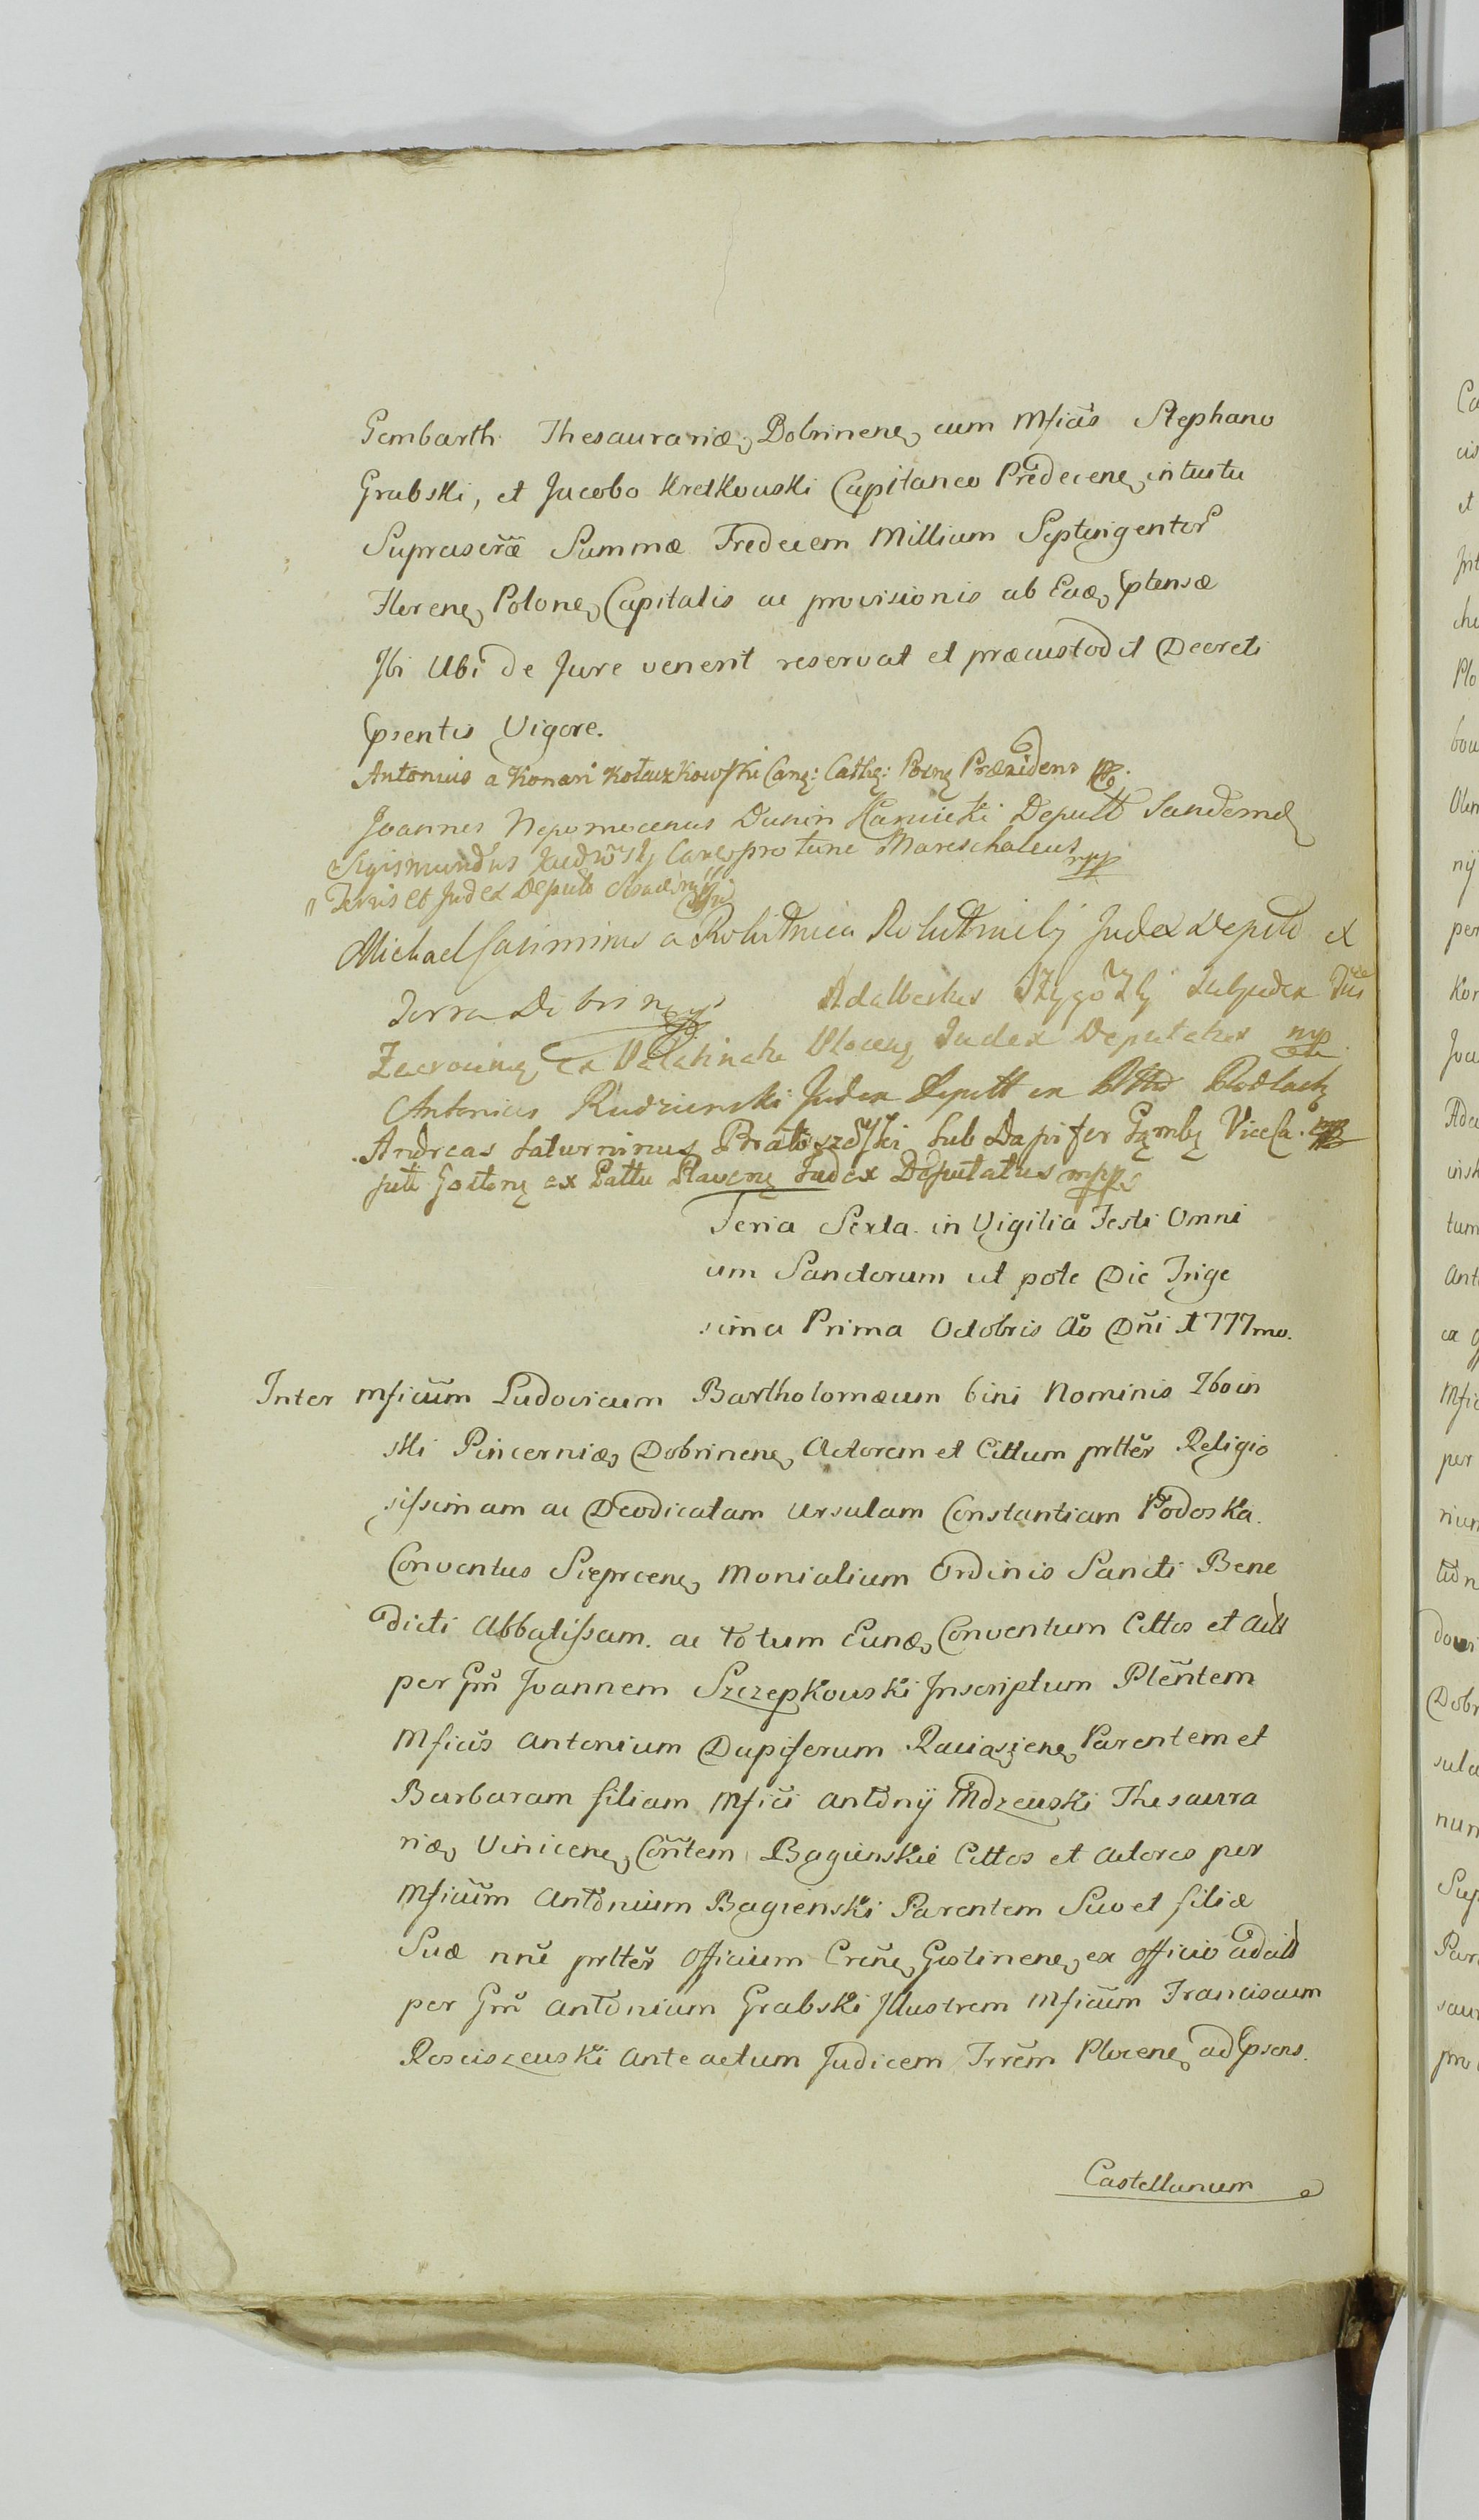 Gembarth Thesaurariæ Dobrinen cum Mficis Stephano
Grabski, et Jacobo Kretkowski Capitaneo Predecen intuitu
Suprascræ Summæ Tredecem Millium Septingentor
Floren Polon Capitalis ac provisionis ab Ead ptensæ
Ibi Ubi de Jure venerit reservat et præcustodit Decreti
psentis Vigore.
Antonius a Konari Kołaczkowski Can: Cath: Posn Præsidens
Joannes Nepomocenus Dunin Karwicki Deputt Sandom
Sigismundus protunc Mareschalcus mpp
Terris et Judex Deput
Michael Casimirus a Rokitnica Rokitnicki Judex Deputt ex
Terra Dobrin Adalbertus Subjudex
Zacrocim Ex Palatinatu Plocen Judex Deputatus mp
Antonius Rudzienski Judex Deputt ex Podlach
Andreas Saturninus Sub Dapifer Gąmb ViceCa
Goston ex Pattu Raven Judex Deputatus mpp
Feria Sexta in Vigilia Festi Omni
um Sanctorum ut pote Die Trige
sima Prima Octobris Ao Dni 1777mo.
Inter Mficum Ludovicum Bartholomæum bini Nominis Zboin
ski Pincernia Dobrinen Actorem et Cittum prtter Religio
sissimam ac Deodicatam Ursulam Constantiam Podoska
Conventus Sieprcen Monialium Ordinis Sancti Bene
dicti Abbatissam ac totum Eund Conventum Cittos et
per Joannem Szczepkowski Inscriptum Plentem
Mficus Antonium Dapiferum Raciązen Parentem et
Barbaram filiam Mfici Antonij Mdzewski Thesaura
ria Vinicen Contem Bagienskie Cittos et Actores per
Mficum Antonium Bagienski Parentem Suo et filiæ
Suæ nne prtter Officium Gostinen ex officio
per Antonium Grabski Illustrem Mficum Franciscum
Rosciszewski Anteactum Judicem Trrem Plocen ad psens
Castellanum